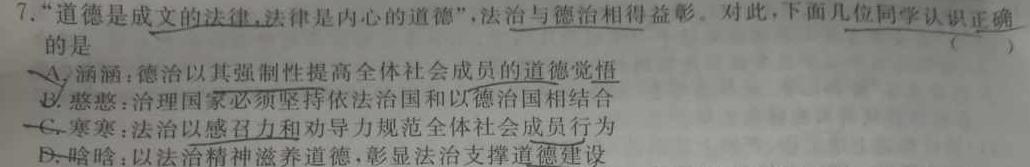 7.“道德是成文的法律,法律是内心的道德”,法治与德治相得益彰。对此,下面几位同学认识正确
的是 ( )
A. 涵涵:德治以其强制性提高全体社会成员的道德觉悟
B. 憨憨:治理国家必须坚持依法治国和以德治国相结合
C. 寒寒:法治以感召力和劝导力规范全体社会成员行为
D. 晗晗:以法治精神滋养道德,彰显法治支撑道德建设